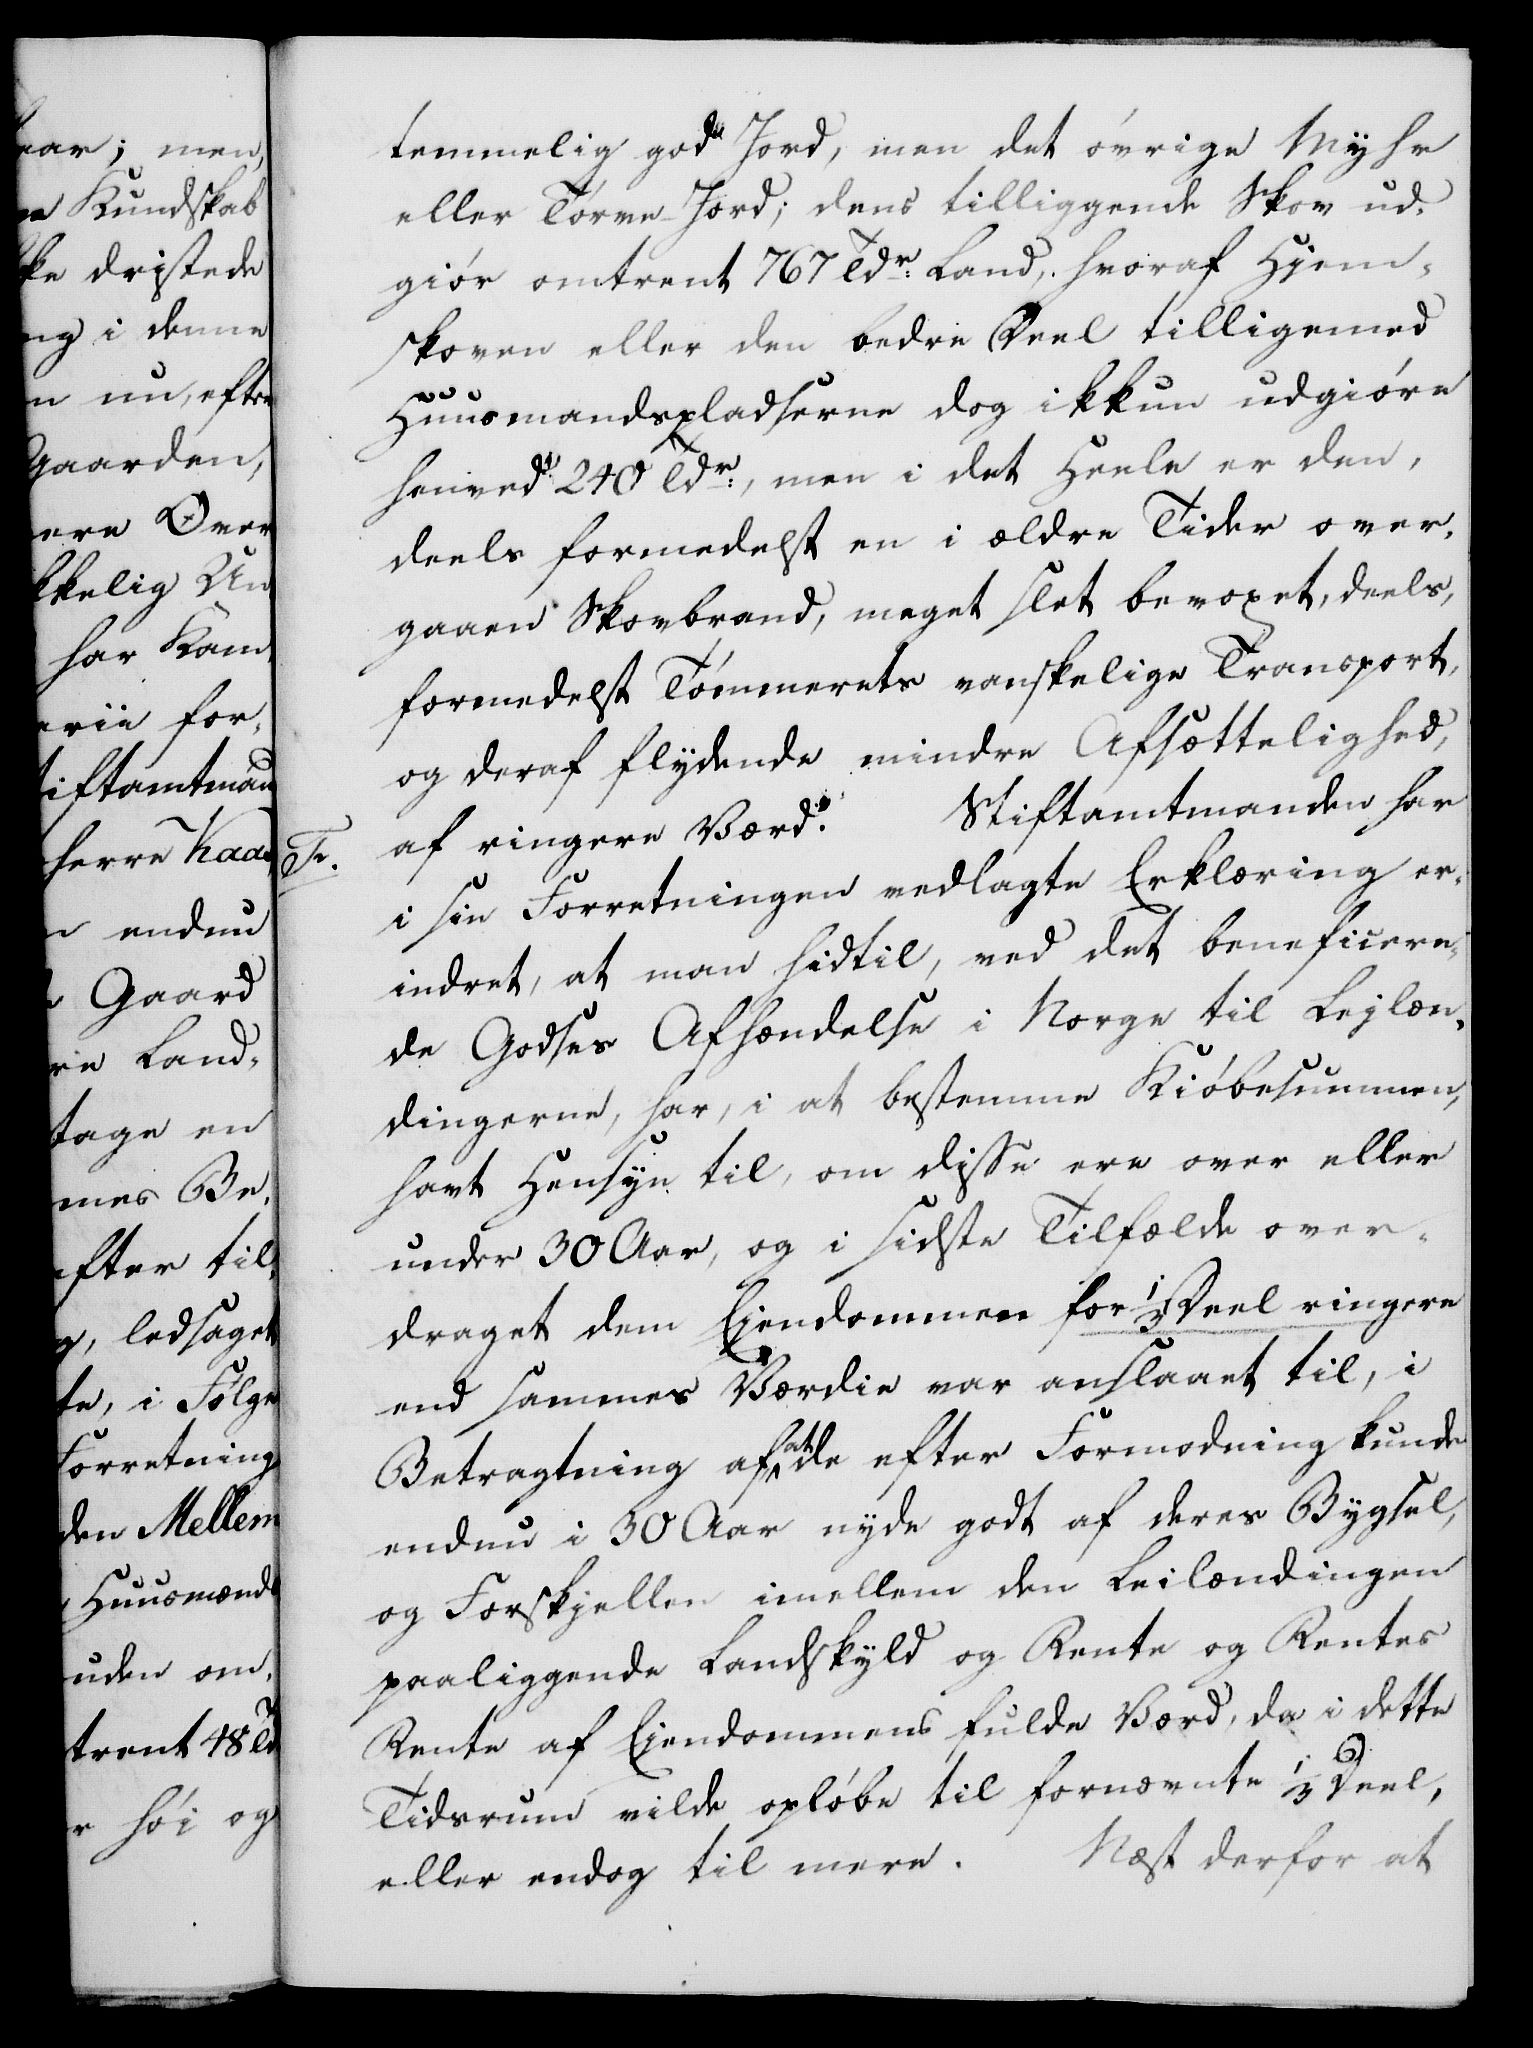 aar; men,
Kundskab
ke dristede
ng i denne
n nu, efter
Gaarden,
ere Over
kkelig Un
har Kam,
erie for,
tiftamtman
herre Kaas,
endnu
Gaard
re Land,
tage en
mes Be,
fter til,
g, ledsaget
te, i Følge
Forretning
den Mellem
Huusmænds
uden om,
trent 48 Td
r høi og
temmelig god Jord, men det øvrige Myhr
eller Tørve-Jord; dens tilliggende Skov ud,
giør omtrent 767 Tdr: Land, hvoraf Hjem,
skoven eller den bedre Deel tilligemed
Huusmandspladserne dog ikkun udgiøre
henved 240 Tdr:, men i det Heele er den,
deels formedelst en i ældre Tider over,
gaaen Skovbrand, meget slet bevoxet, deels,
formedelst Tømmerets vanskelige Transport,
og deraf flydende mindre Afsættelighed,
af ringere Værd. Stiftamtmanden har
Fr.
i sin Forretningen vedlagte Erklæring er,
indret, at man hidtil, ved det beneficere,
de Godses Afhændelse i Norge til Lejlæn,
dingerne, har, i at bestemme Kiøbesummen,
havt Hensyn til, om disse ere over eller
under 30 Aar, og i sidste Tilfælde over,
draget dem Ejendommen for 1/3 Deel ringere
end sammes Værdie var anslaaet til, i
Betragtning af at de efter Formodning kunde
endnu i 30 Aar nyde godt af deres Bygsel,
og Forskjellen imellem den Leilændingen
paaliggende Landskyld og Rente og Rentes
Rente af Ejendommens fulde Værd, da i dette
Tidsrum vilde opløbe til fornævnte 1/3 Deel,
eller endog til mere. Næst derfor at